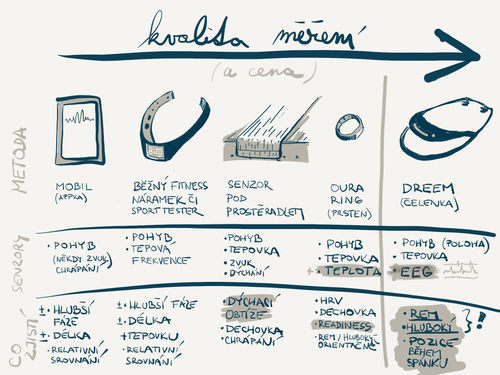 kvalita měření
(a cena)
METODA
MOBIL
(APPKA)
BĚŽNÝ FITNESS
NÁRAMEK ČI
SPORT TESTER
SENZOR
POD
PROSTĚRADLEM
OURA
RING
(PRSTEN)
DREEM
(ČELENKA)
SENZORY
• POHYB
(NĚKDY ZVUK,
CHRÁPÁNÍ)
• POHYB
• TEPOVÁ
FREKVENCE
• POHYB
• TEPOVKA
• ZVUK
• DÝCHÁNÍ
• POHYB
• TEPOVKA
+ • TEPLOTA
• POHYB (POLOHA)
• TEPOVKA
• EEG
CO
ZJISTÍ
± • HLUBŠÍ
FÁZE
± • DÉLKA
• RELATIVNÍ
SROVNÁNÍ
± • HLUBŠÍ FÁZE
± • DÉLKA
+ TEPOVKU
• RELATIVNÍ
SROVNÁNÍ
• DÝCHACÍ
OBTÍŽE
• DECHOVKA
CHRÁPÁNÍ
• HRV
• DECHOVKA
• READINESS
• REM / HLUBOKÝ
ORIENTAČNĚ
• REM
• HLUBOKÝ
• POZICE
BĚHEM
SPÁNKU
} !